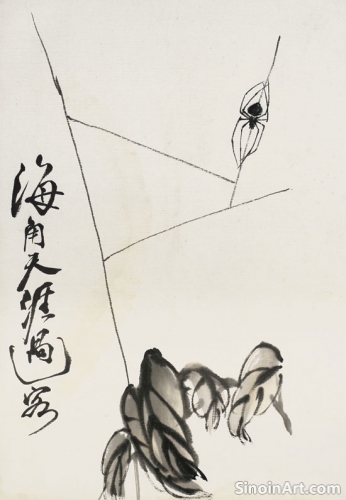 海角天涯過客
SinoinArt.com